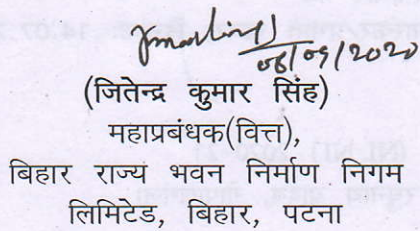 06/09/2020
(जितेन्द्र कुमार सिंह)
महाप्रबंधक(वित्त),
बिहार राज्य भवन निर्माण निगम
लिमिटेड, बिहार, पटना